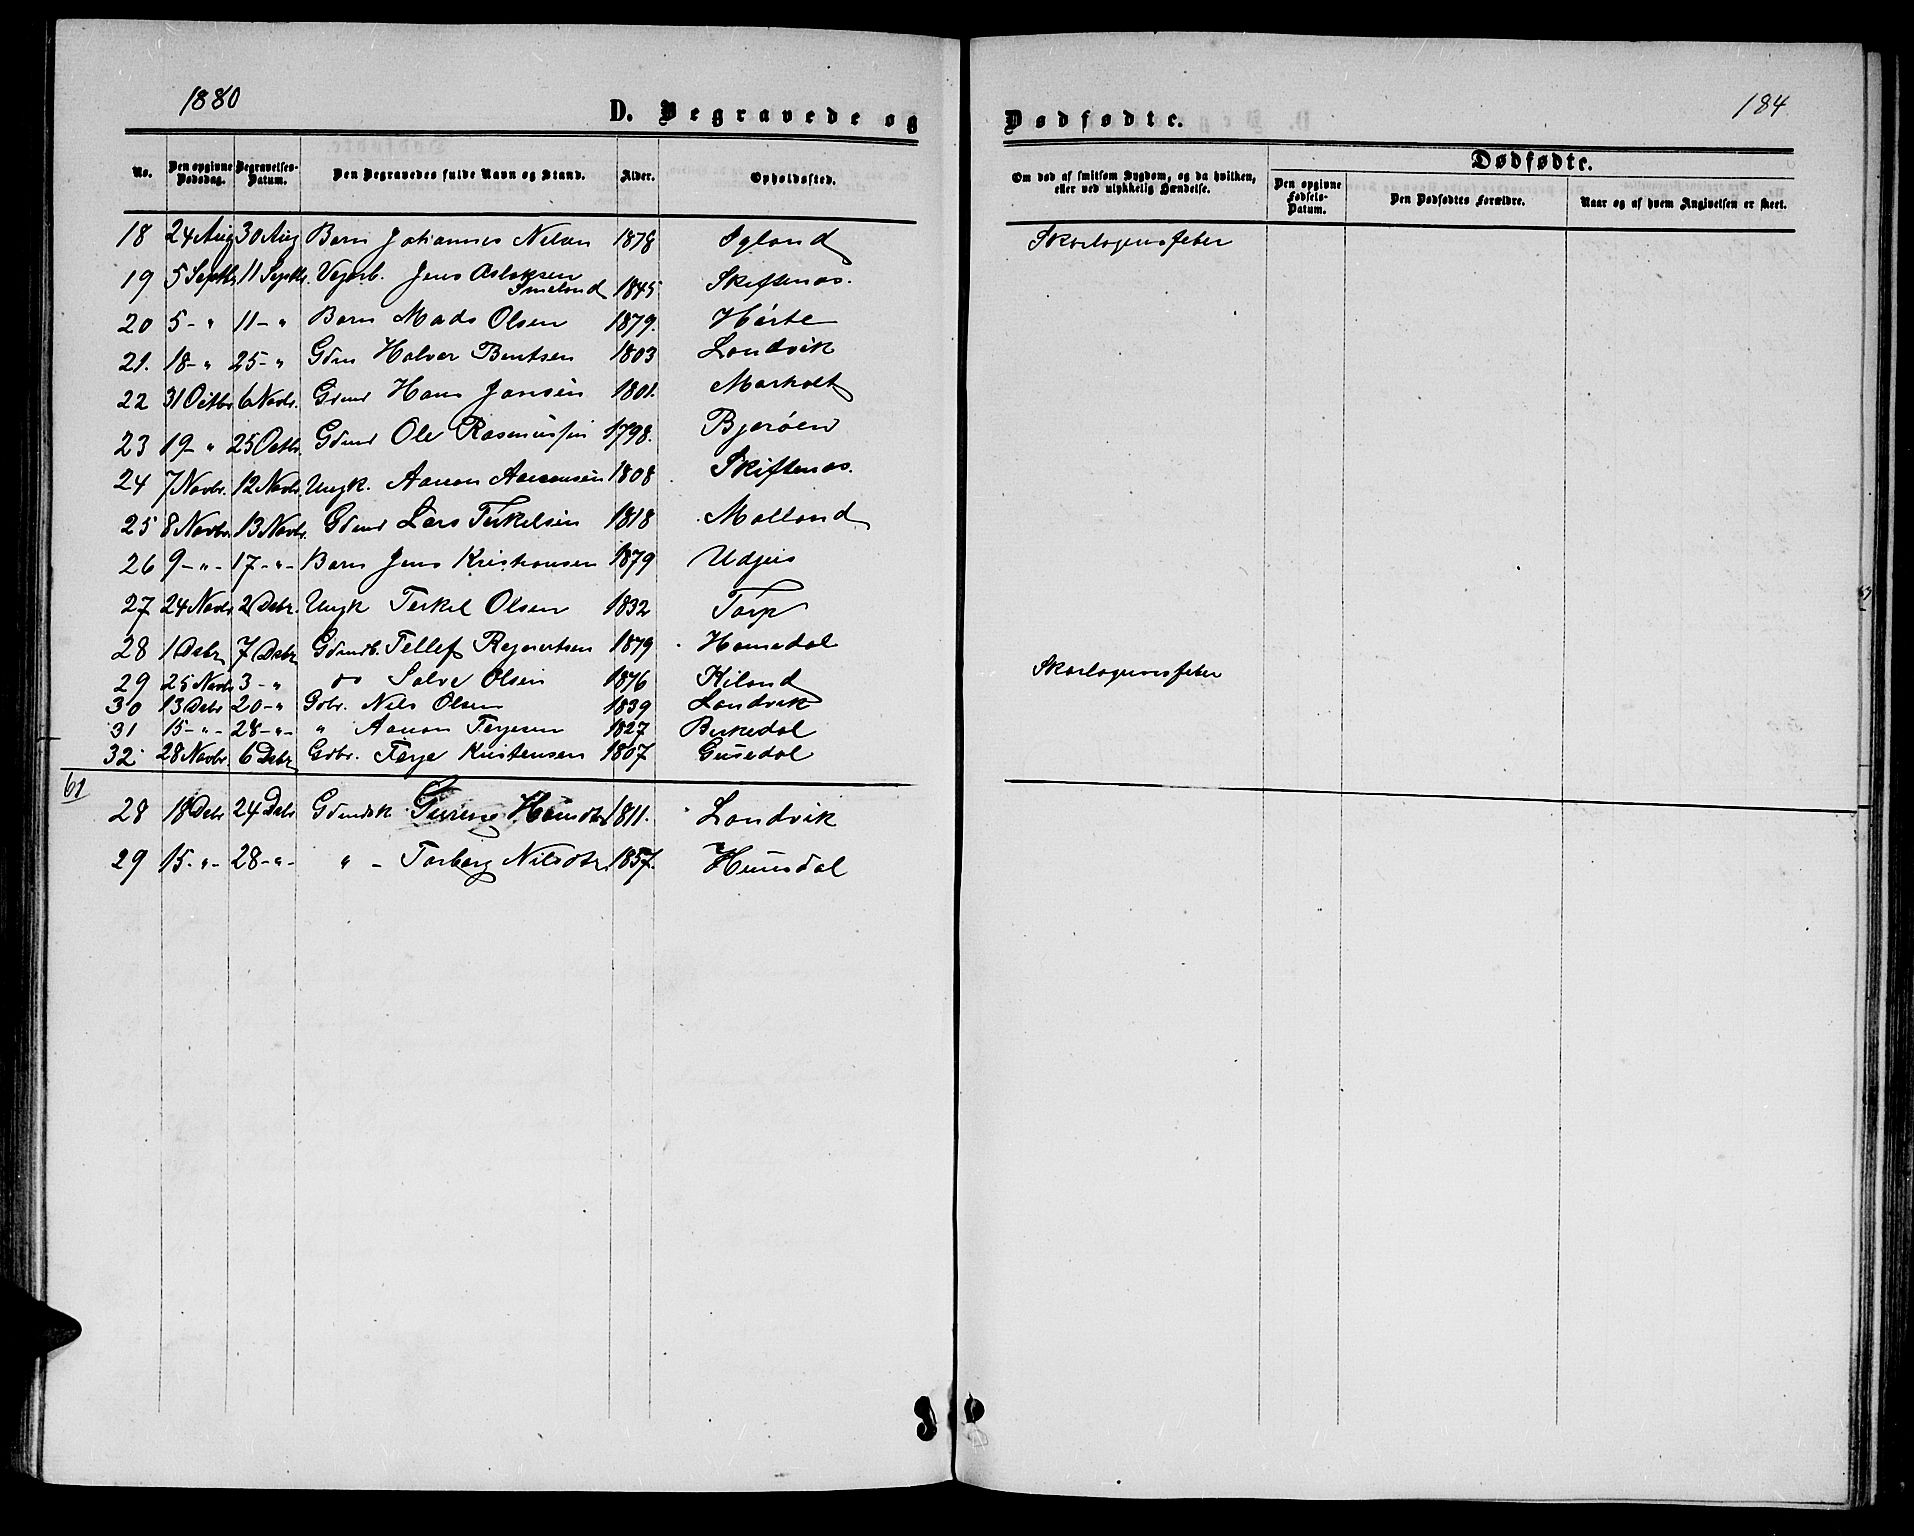 1880
D. Begravede og Dødfødte.
184
No. Den opgivne Dødsdag. Begravelses-Datum. Den Begravedes fulde Navn og Stand. Alder. Opholdssted. Om død af smitsom Sygdom, og da hvilken, eller ved ulykkelig Hændelse. Dødfødte. Den opgivne Fødsels-Datum. Den Dødfødtes Forældre. Naar og af hvem Angivelsen er skeet.
18 24 Aug 30 Aug Barn Johannes Nilsen 1878 Igland Skarlagensfeber
19 5 Septbr 11 Septbr. Jens Aslaksen Smeland 1845 Skiftenes.
20 5 - " 11 - " Barn Mads Olsen 1879. Hørte
21. 18 - " 25 - " Gdm Halvor Bentsen 1803 Landvik
22 31 Octbr 6 Novbr. Gdmd Hans Jensen 1801. Morholt
23 19 - " 25 Octbr. Gdmd Ole Rasmussen 1798. Bjorøen
24 7 Novbr. 12 Novbr. Ungk. Aanon Aanonsen 1808 Skiftenes.
25 8 Novbr. 13 Novbr. Gdmd Lars Terkelsen 1818 Molland
26 9 - " - 17 - " - Barn Jens Kristiansen 1879 Udjus
27 24 Novbr 2 Debr. Ungk Terkel Olsen 1832 Torp
28 1 Debr 7 Debr Gdmdb. Tellef 1879 Homedal
29 25 Novbr 3 - " do Salve Olsen 1876 Kiland Skarlagensfeber
30 13 Debr 20 - " Gdbr. Nils Olsen 1839 Landvik
31 15 - " - 28 - " - " Aanon Terjesen 1827 Birkedal
32 28 Novbr. 6 Debr Gdbr. Terje Kristensen 1807 Gusedal
61
28 18 Debr 24 Debr Gurine 1811. Landvik
29 15 - " - 28 - " - " - Torborg Nilsdtr 1857. Humdal